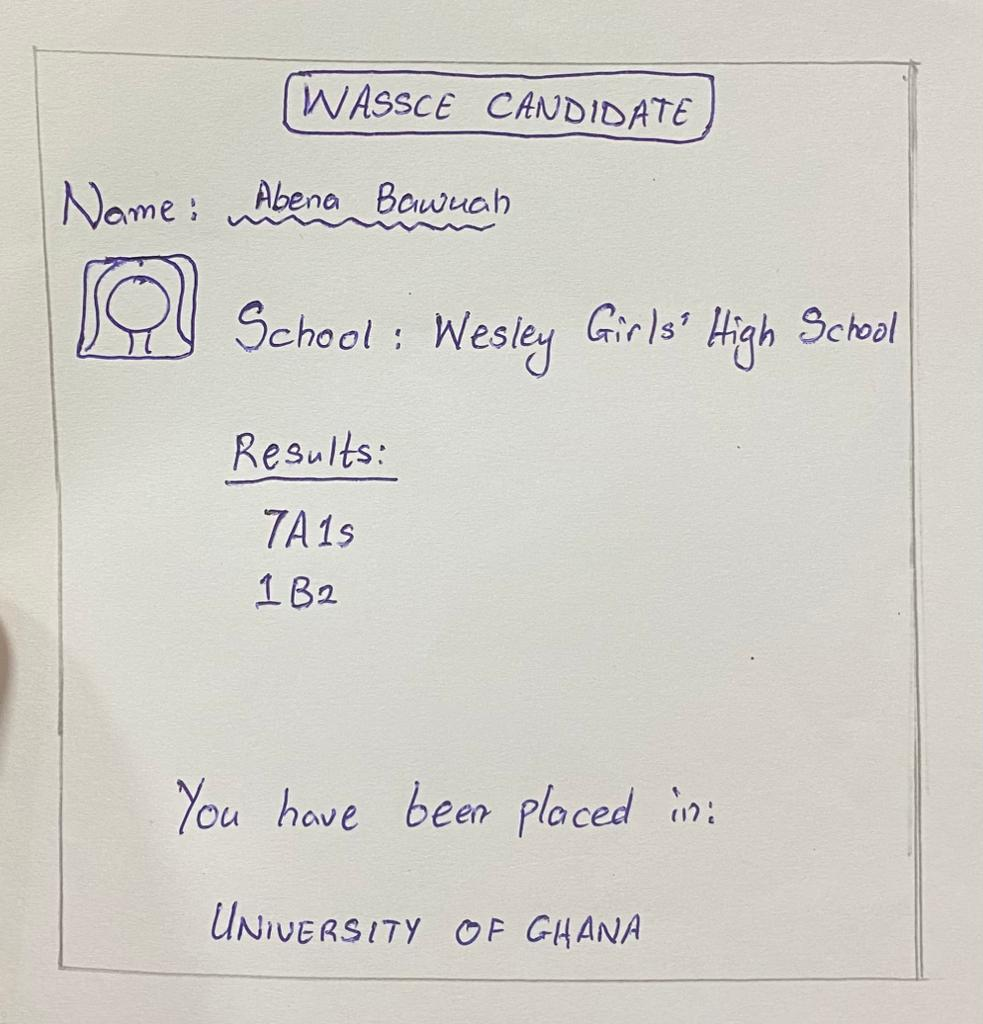 WASSCE CANDIDATE
Name: Abena Bawuah
School: Wesley Girls' High School
Results:
7A1s
1B2
You have been placed in:
UNIVERSITY OF GHANA